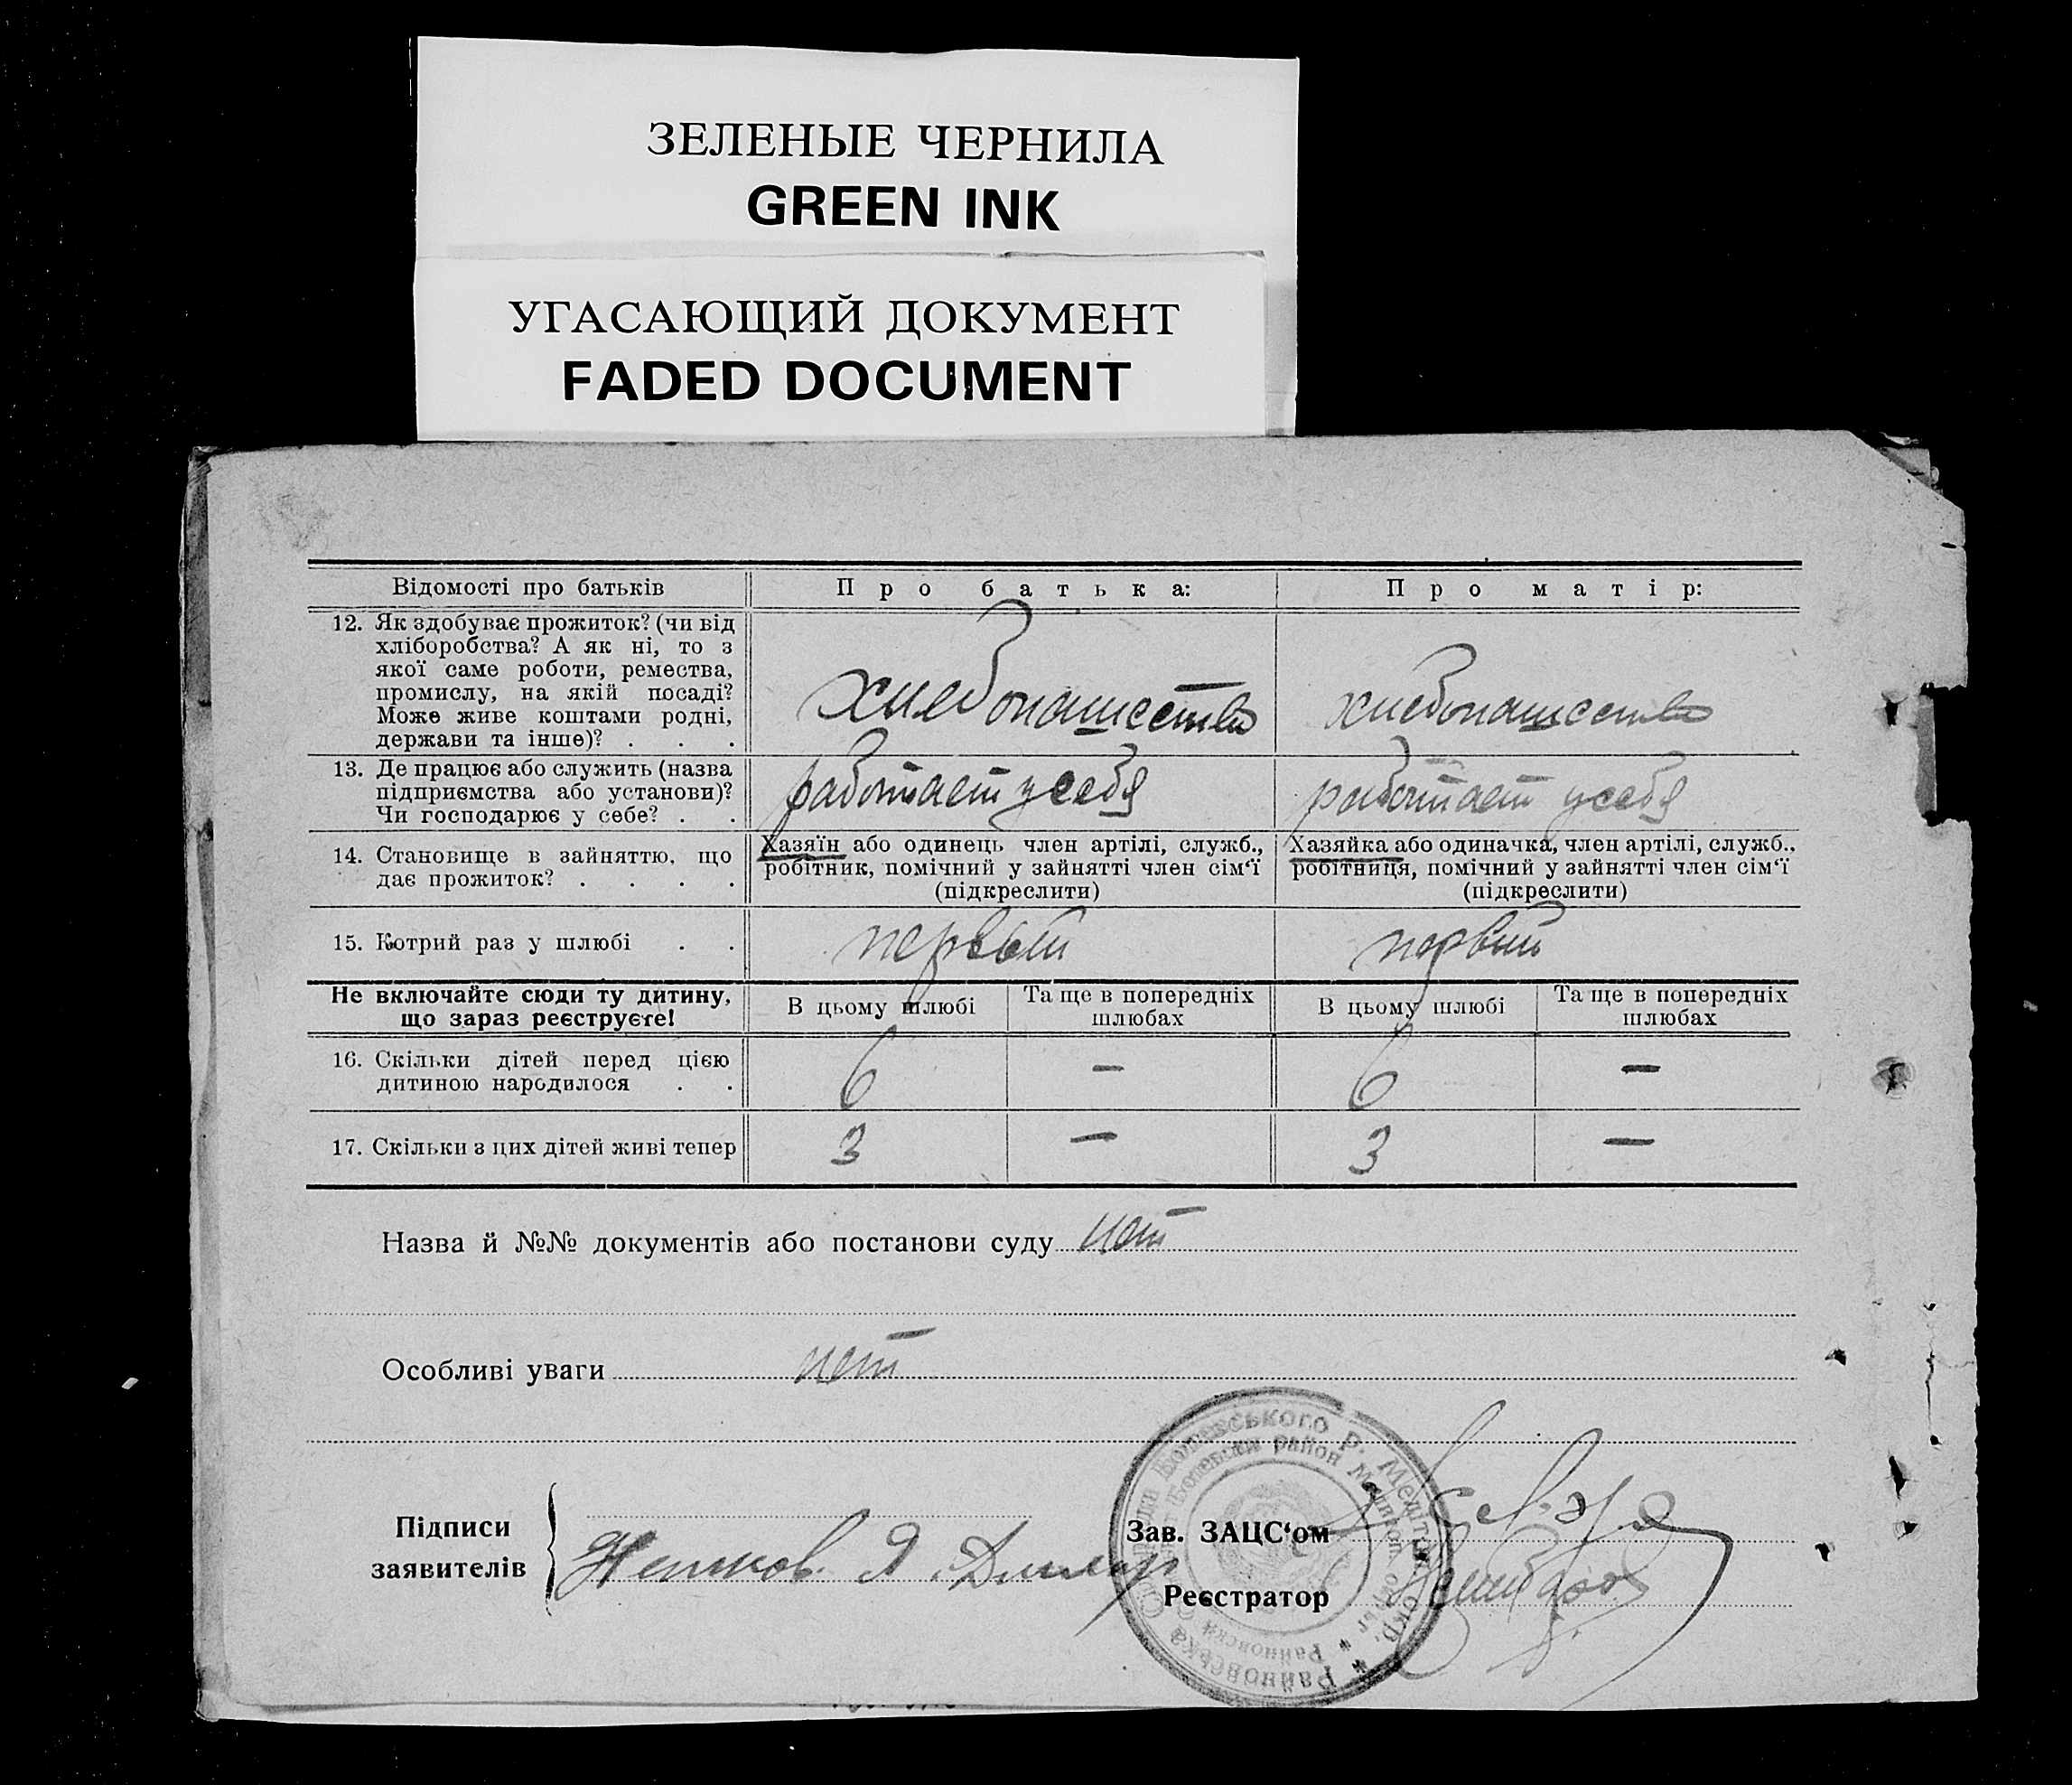 ЗЕЛЕНЫЕ ЧЕРНИЛА
GREEN INK
УГАСАЮЩИЙ ДОКУМЕНТ
FADED DOCUMENT
Відомості про батьків
Про батька:
Про матір:
12. Як здобуває прожиток? (чи від
хліборобства? А як ні, то з
якої саме роботи, ремества,
промислу, на якій посаді?
Може живе коштами родні,
держави та інше)? . . .
хлебопашество
хлебопашество
13. Де працює або служить (назва
підприємства або установи)?
Чи господарює у себе? . .
работает у себя
работает у себя
14. Становище в зайняттю, що
дає прожиток? . . . .
Хазяїн або одинець член артілі, служб.,
робітник, помічний у зайнятті член сім‘ї
(підкреслити)
Хазяйка або одиначка, член артілі, служб.,
робітниця, помічний у зайнятті член сім‘ї
(підкреслити)
15. Котрий раз у шлюбі . .
первый
первый
Не включайте сюди ту дитину,
що зараз реєструєте!
В цьому шлюбі
Та ще в попередніх
шлюбах
В цьому шлюбі
Та ще в попередніх
шлюбах
16. Скільки дітей перед цією
дитиною народилося . .
6
—
6
—
17. Скільки з цих дітей живі тепер
3
—
3
—
Назва й №№ документів або постанови суду нет
Особливі уваги нет
Підписи
заявителів
Зав. ЗАЦС‘ом
Реєстратор